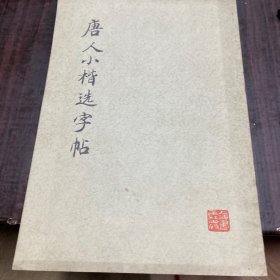 唐人小楷选字帖